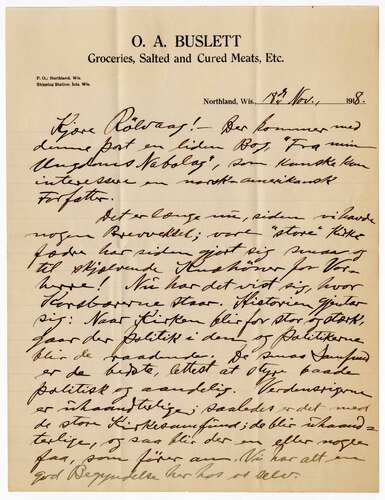 O. A. BUSLETT
Groceries, Salted and Cured Meats, Etc.
P. O.; Northland, Wis.
Shipping Station; Iola, Wis.
Northland, Wis. 18de Nov., 1918.
Kjære Rölvaag! — Der kommer med
denne post en liden Bog, "Fra min
Ungdoms Nabolag", som kanske kan
interessere en norsk-amerikansk
Forfatter.
Det er længe nu, siden vi havde
nogen Brevveksel; vore "store" Kirke-
fædre har siden gjort sig smaa og
til skjælvende for Vor-
herre! Nu har det vist sig, hvor
Korsbærerne staar. Historien gjentar
sig: Naar Kirken blir for stor og stærk,
gaar der politik i den, og Politikerne
blir de raadende. De smaa Samfund
er de bedste, lettest at styre baade
politisk og aandelig. Verdensrigerne
er uhaandterlige; saaledes er det med
de store Kirkesamfund; de blir uhaand-
terlige, og saa blir der en eller nogle
faa, som fører an. Vi har alt en
god Begyndelse her hos os selv.